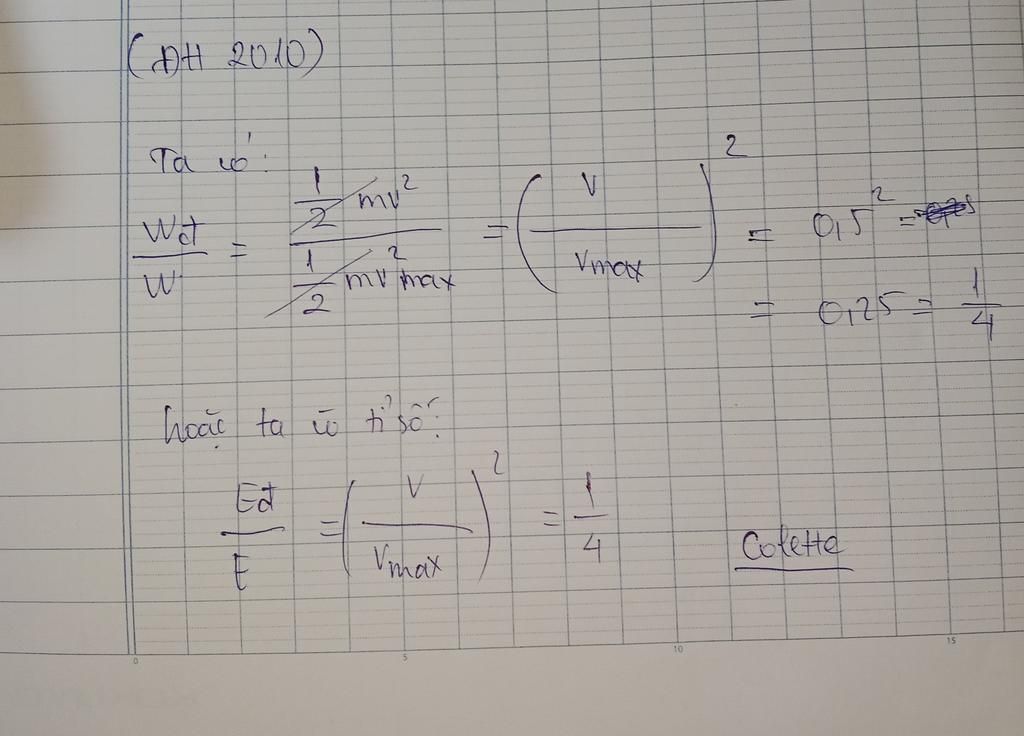 (ĐH 2010)
Ta có:
Wđ/W = (1/2 mv²)/(1/2 mv²max) = (v/vmax)² = 0,5² =
= 0,25 = 1/4
hoặc ta có tỉ số:
Eđ/E = (v/vmax)² = 1/4
Colette
0 5 10 15